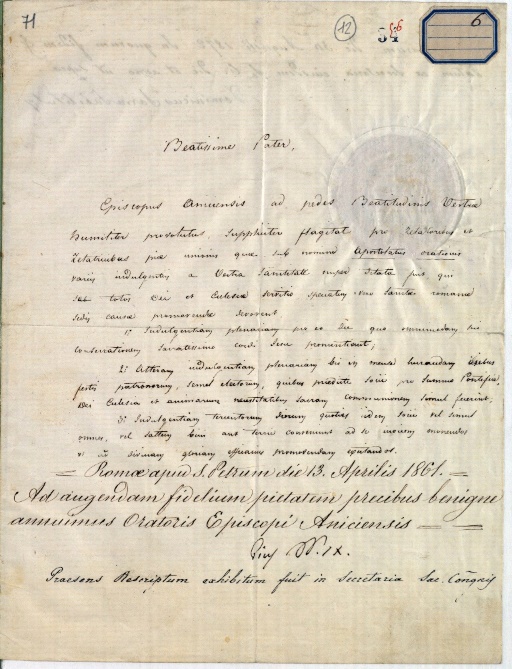 71
12
34
56
6
Beatissime Pater,
Episcopus Aniciensis ad pedes Beatitudinis Vestræ
humiliter provolutus, suppliciter flagitat pro Zelatoribus et
Zelatricibus piæ unionis quæ sub nomine Apostolatus orationis
variis indulgentiis a Vestra Sanctitate nuper ditata fuit qui
totos Dei et Ecclesiæ servitio Sanctæ romanæ
sedis causæ promovendæ devovent
1º Indulgentiam plenariam pro eo die quo
consecrationem sacratissimo cordi Jesu pronuntiant;
2º Alteram indulgentiam plenariam bis in mense lucrandam diebus
festis patronorum, semel electorum, quibus prædictæ sociæ pro summo Pontifice,
Dei Ecclesia et animarum necessitatibus sacram communionem fecerint;
3º Indulgentiam tercentorum dierum quoties iidem socii vel simul
omnes, vel saltem bini aut terni conveniunt ad se invicem movendos
et ad divinam gloriam promovendam excitandos.
= Romæ apud S. Petrum die 13. Aprilis 1861. =
Ad augendam fidelium pietatem precibus benigne
annuimus Oratoris Episcopi Aniciensis
Pius PP. IX.
Praesens Rescriptum exhibitum fuit in Secretaria Sac. Congnis